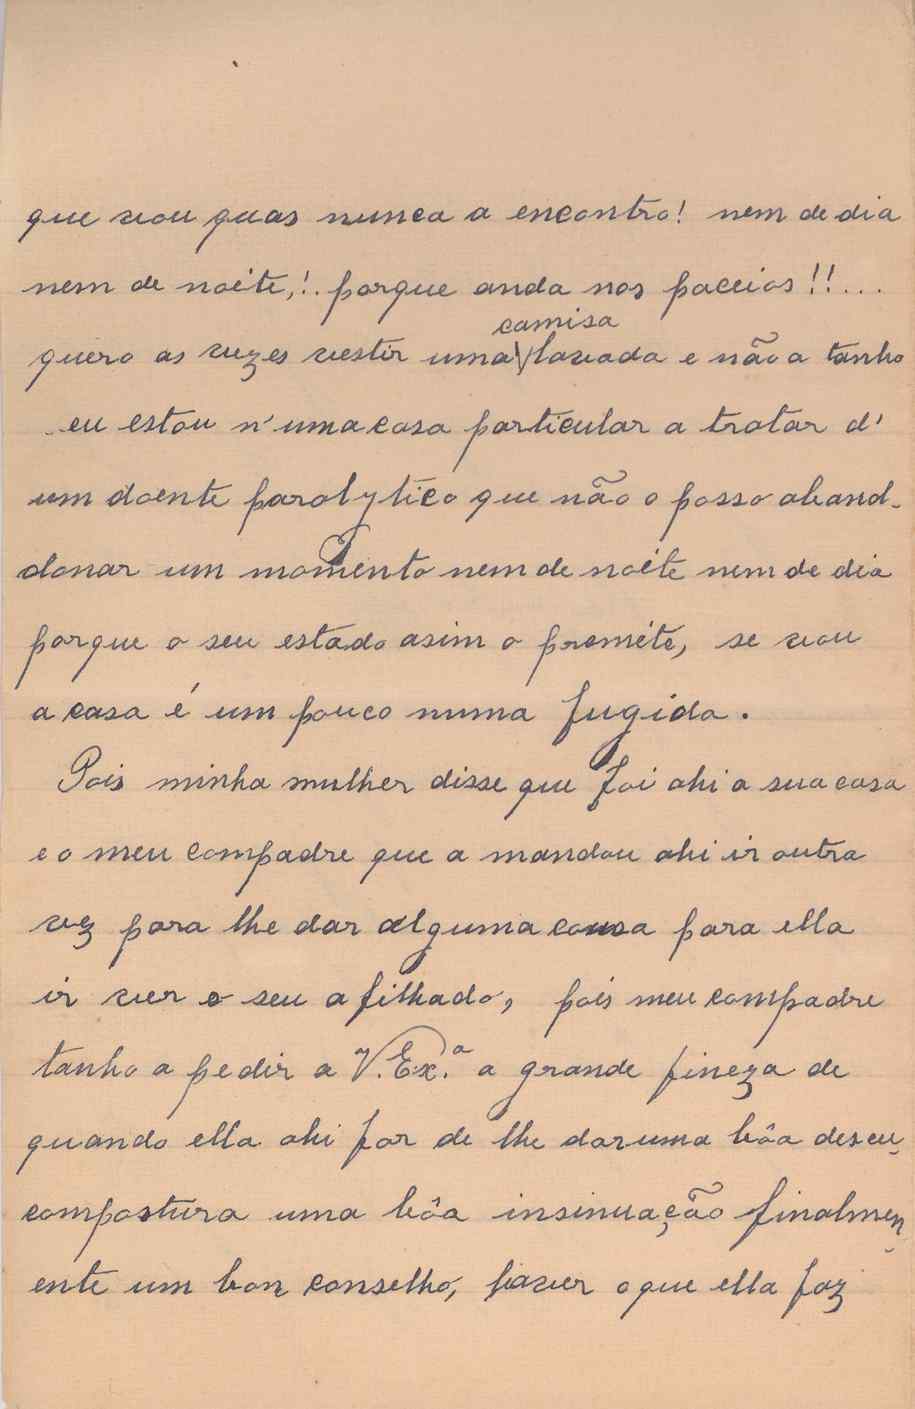 que vou quas nunca a encontro! nem de dia
nem de noite,!. porque anda nos paceios!!...
camisa
quero as vezes vestir uma\/lavada e não a tanho
eu estou n'uma casa particular a tratar d'
um doente paralytico que não o posso aband-
donar um momento nem de noite nem de dia
porque o seu estado asim o prométe, se vou
a casa é um pouco numa fugida.
Pois minha mulher disse que foi ahi a sua casa
e o meu compadre que a mandou ahi ir outra
vez para lhe dar alguma cousa para ella
ir ver o seu afilhado, pois meu compadre
tanho a pedir a V. Ex.ª a grande fineza de
quando ella ahi for de lhe dar uma bôa descu-
compostura uma bôa insinuação finalmen-
ente um bon conselho, haver o que ella faz